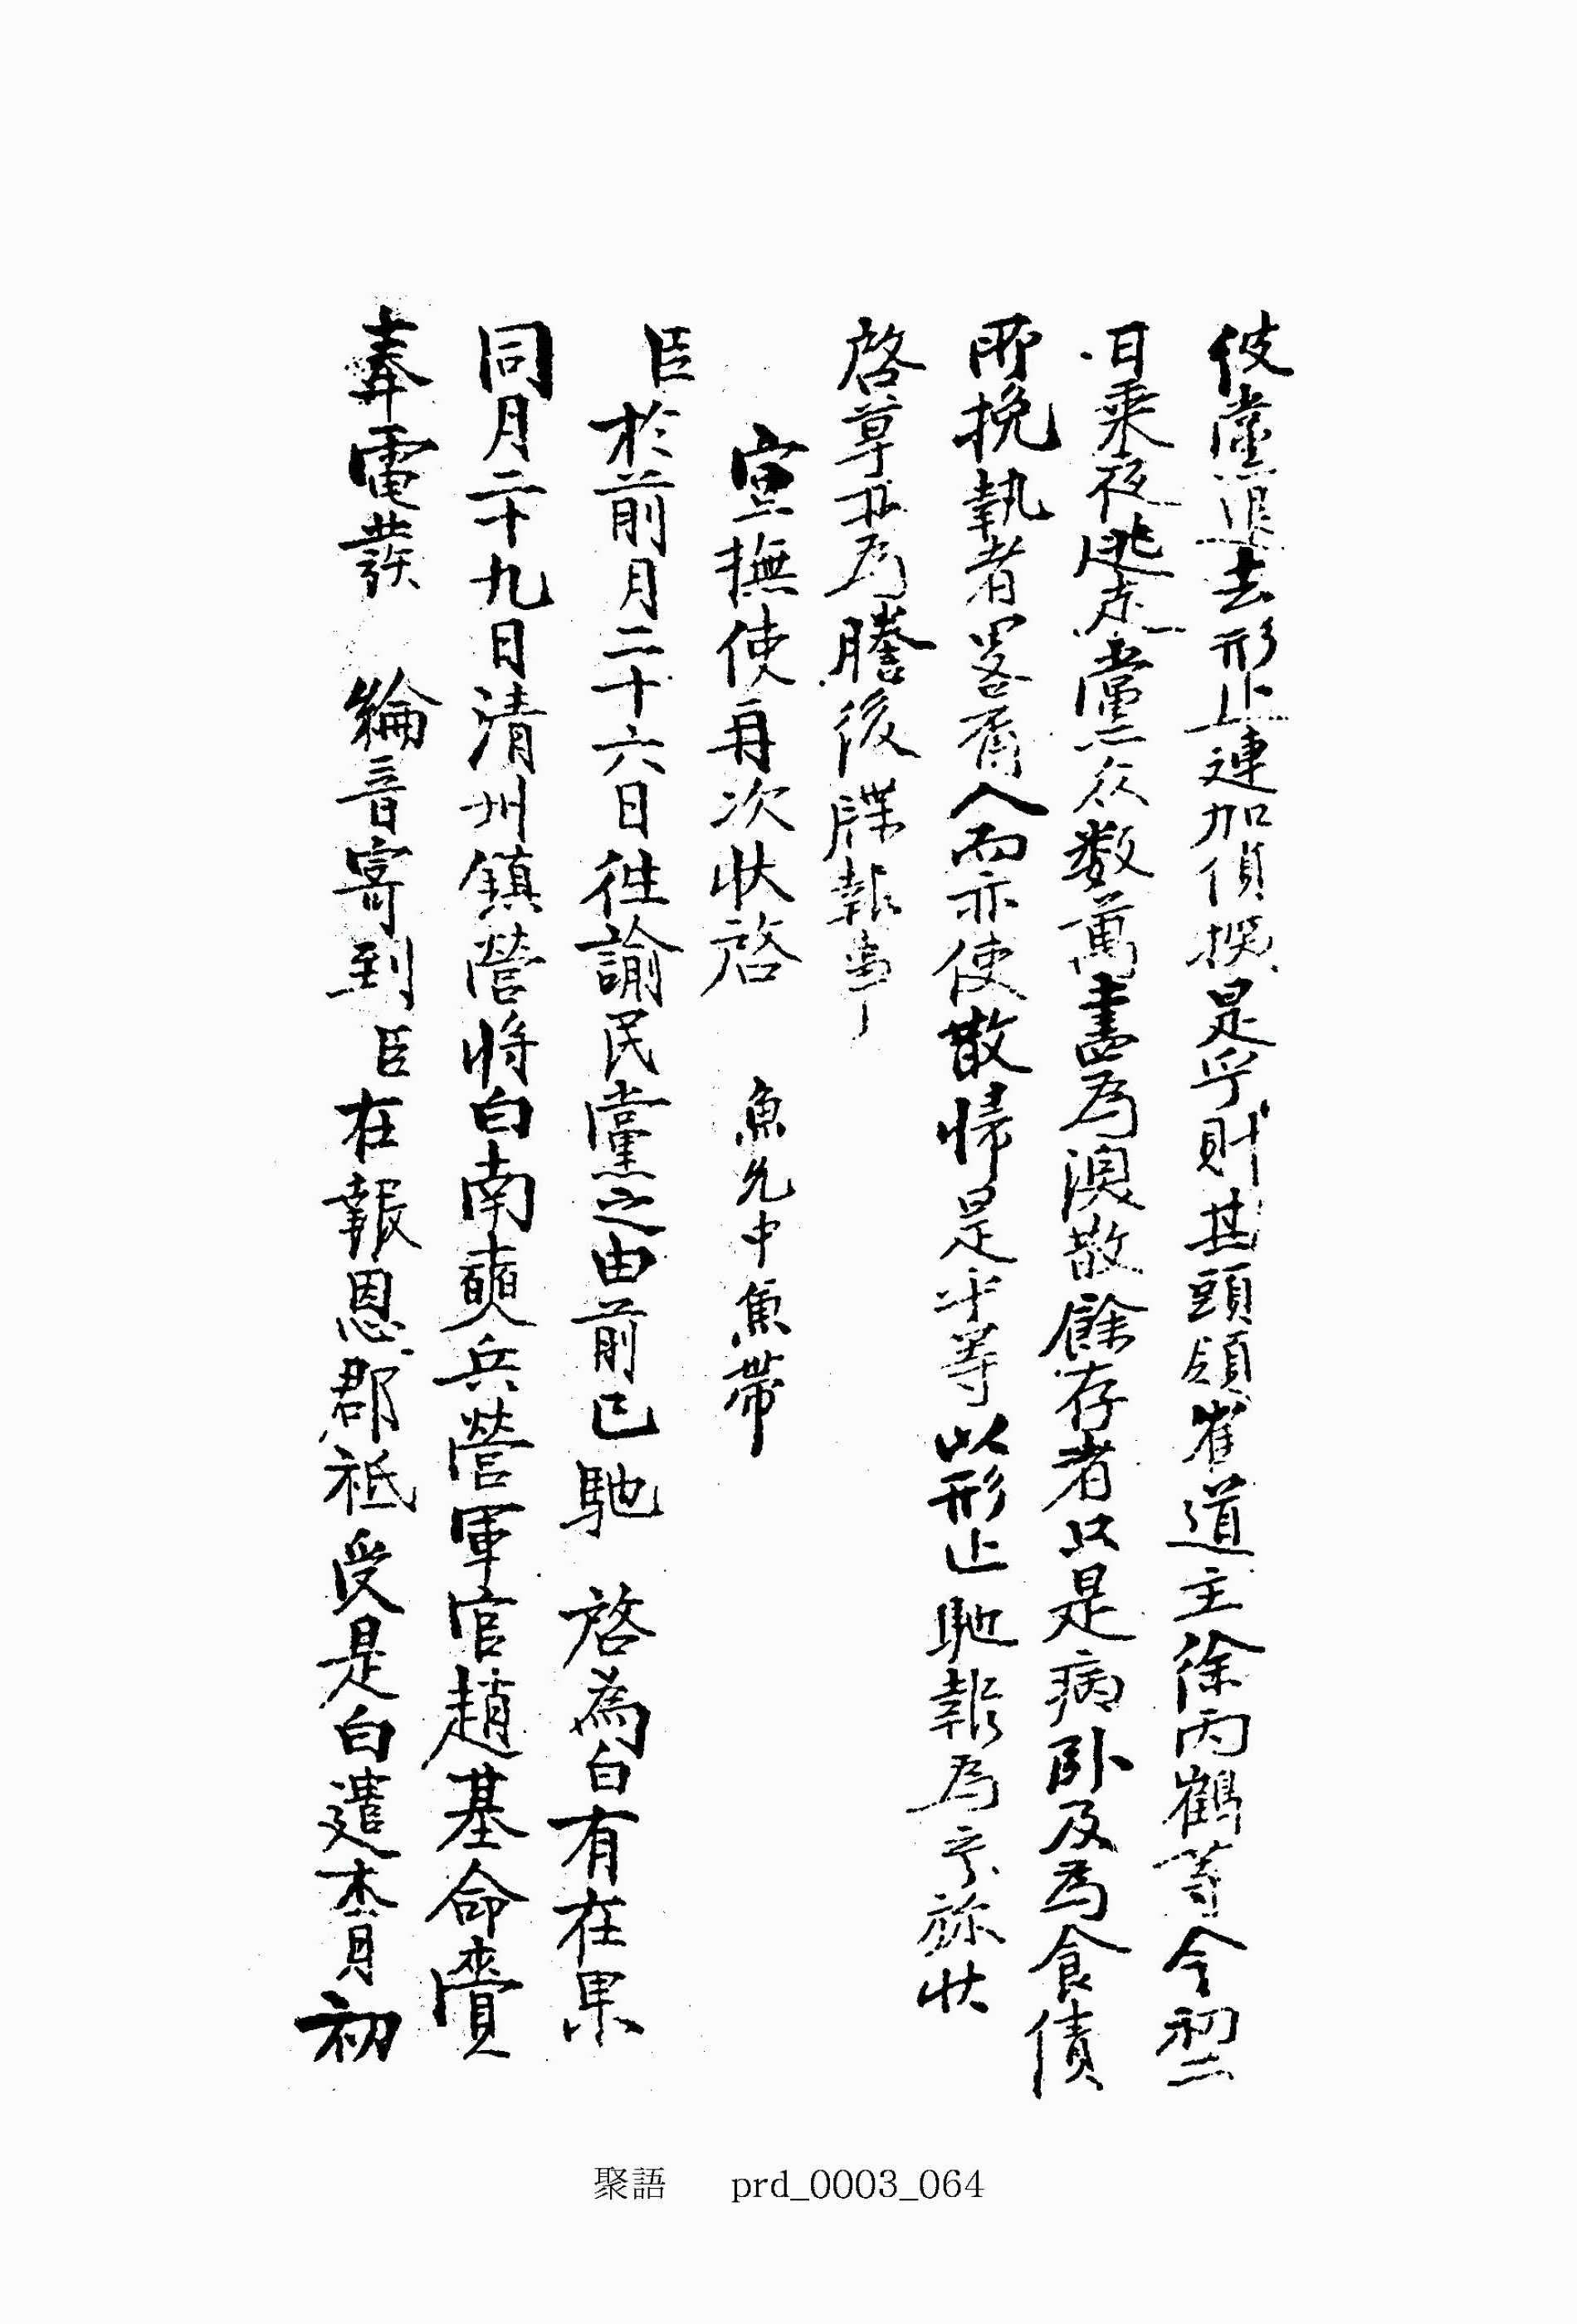 彼黨退去形止連加偵探是乎則其頭領崔道主徐丙鶴等今初二
日乘夜逃走黨衆数萬盡為渙散餘存者只是病卧及為食債
所挽執者畧爾人而亦使散歸是乎等以形止馳報為乎旀狀
啓草北為謄後牒報事
宣撫使再次狀啓 魚允中兼帶
臣於前月二十六日徃諭民黨之由前已馳 啓為白有在果
同月二十九日清州鎮營將白南奭兵營軍官趙基命賫
奉電發 綸音寄到臣在報恩郡祗受是白遣本月初
聚語 prd_0003_064